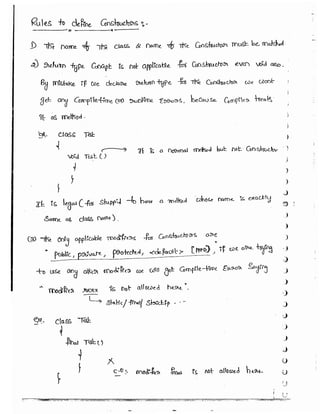 Rules to define Constructors :-
1) The name of the class & name of the Constructor must be matched
2) return type Concept is not applicable for Constructors even void also.
By mistake if we declare return type for the Constructor we won't
get any Compile-time (or) runtime Errors, because Compiler treats
it as method.
Ex: class Test
{
void Test() → It is a normal method but not Constructor
{
}
}
It is legal (but stupid) to have a method whose name is exactly
same as class name).
(3) The only applicable modifiers for Constructors are
public, private, protected, <default>, if we are trying
to use any other modifier we will get Compile-time Error Saying
" modifier xxxx is not allowed here ".
→ static/final/strictfp - - -
Ex: class Test
{
final Test()
{
C.E: modifier final is not allowed here.
}